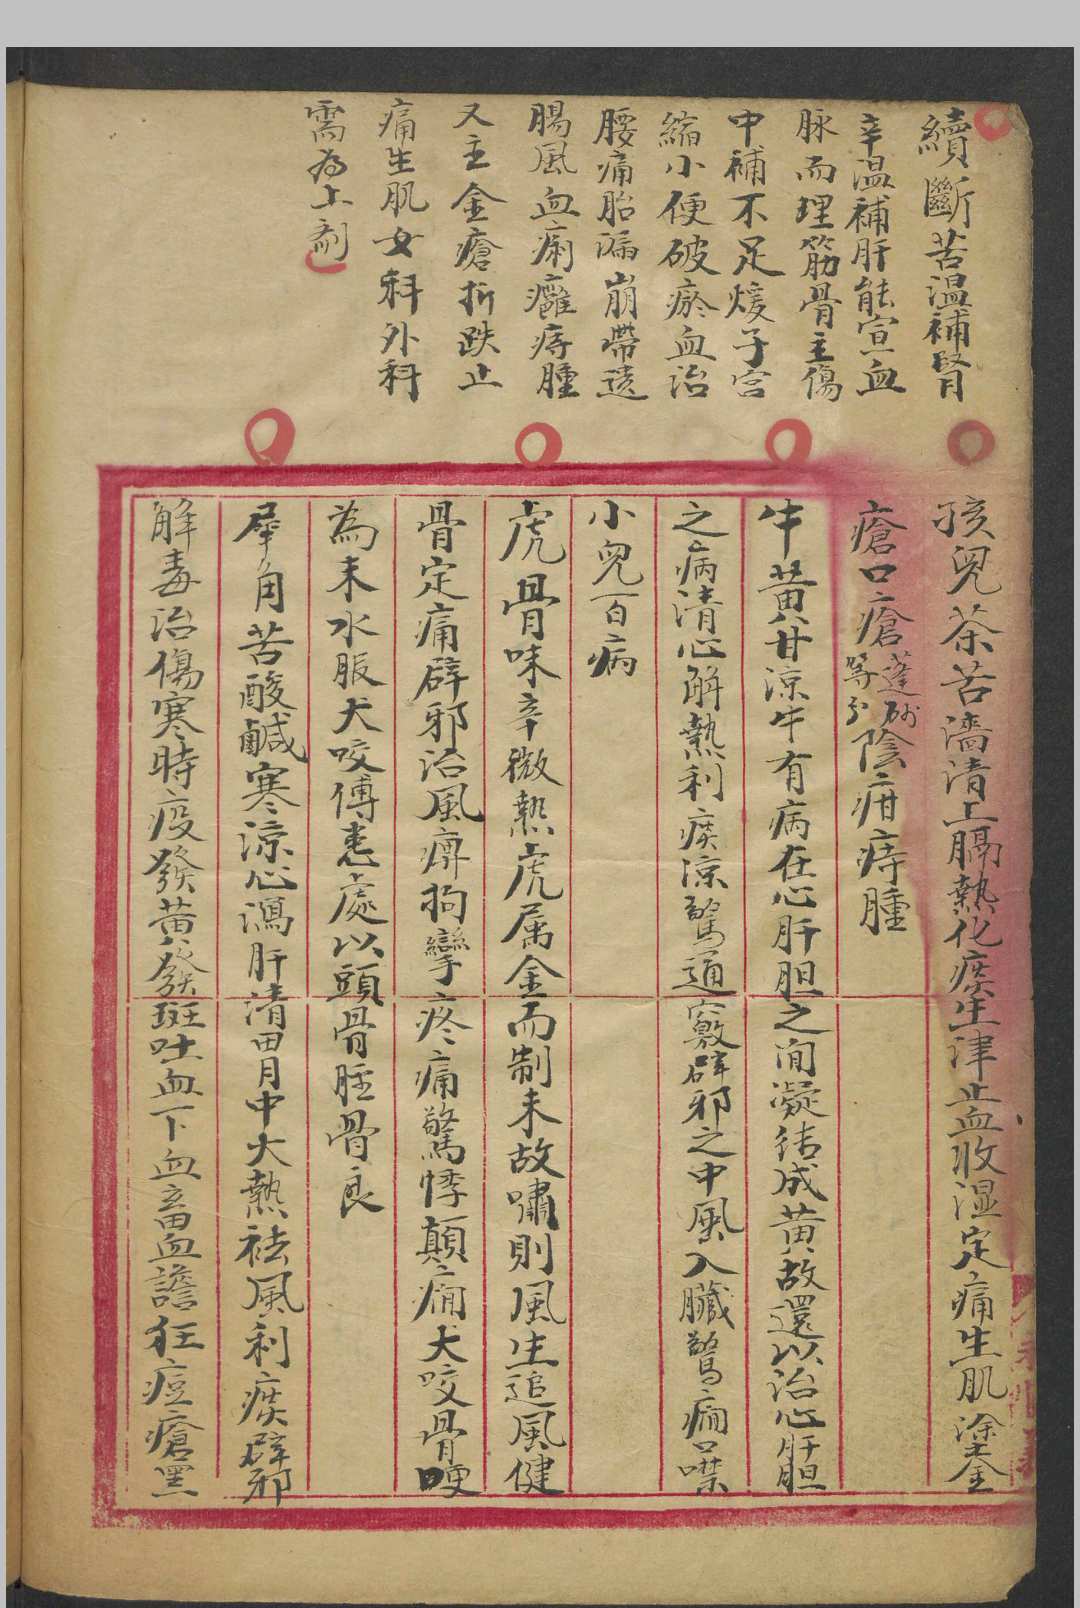 續斷苦温補腎
辛温補肝能宣血
脉而理筋骨主傷
中補不足煖子宫
縮小便破瘀血治
腰痛胎漏崩帶遗
腸風血痢癰痔腫
又主金瘡折跌止
痛生肌女科外科
需為上劑
孩兒茶苦濇清上膈熱化痰生津止血收湿定痛生肌塗金
瘡口瘡蓬砂等分陰疳痔腫
牛黃甘凉牛有病在心肝胆之间凝结成黄故還以治心肝胆
之病清心解熱利痰凉驚通竅辟邪之中風入臟驚癎口噤
小兒百病
虎骨味辛微熱虎属金而制木故嘯則風生追風健
骨定痛辟邪治風痹拘攣疼痛驚悸顛癎犬咬骨哽
為末水服犬咬傅患處以頭骨脛骨良
犀角苦酸鹹寒凉心瀉肝清胃中大熱袪風利痰辟邪
解毒治傷寒時疫發黃發斑吐血下血畜血譫狂痘瘡黑